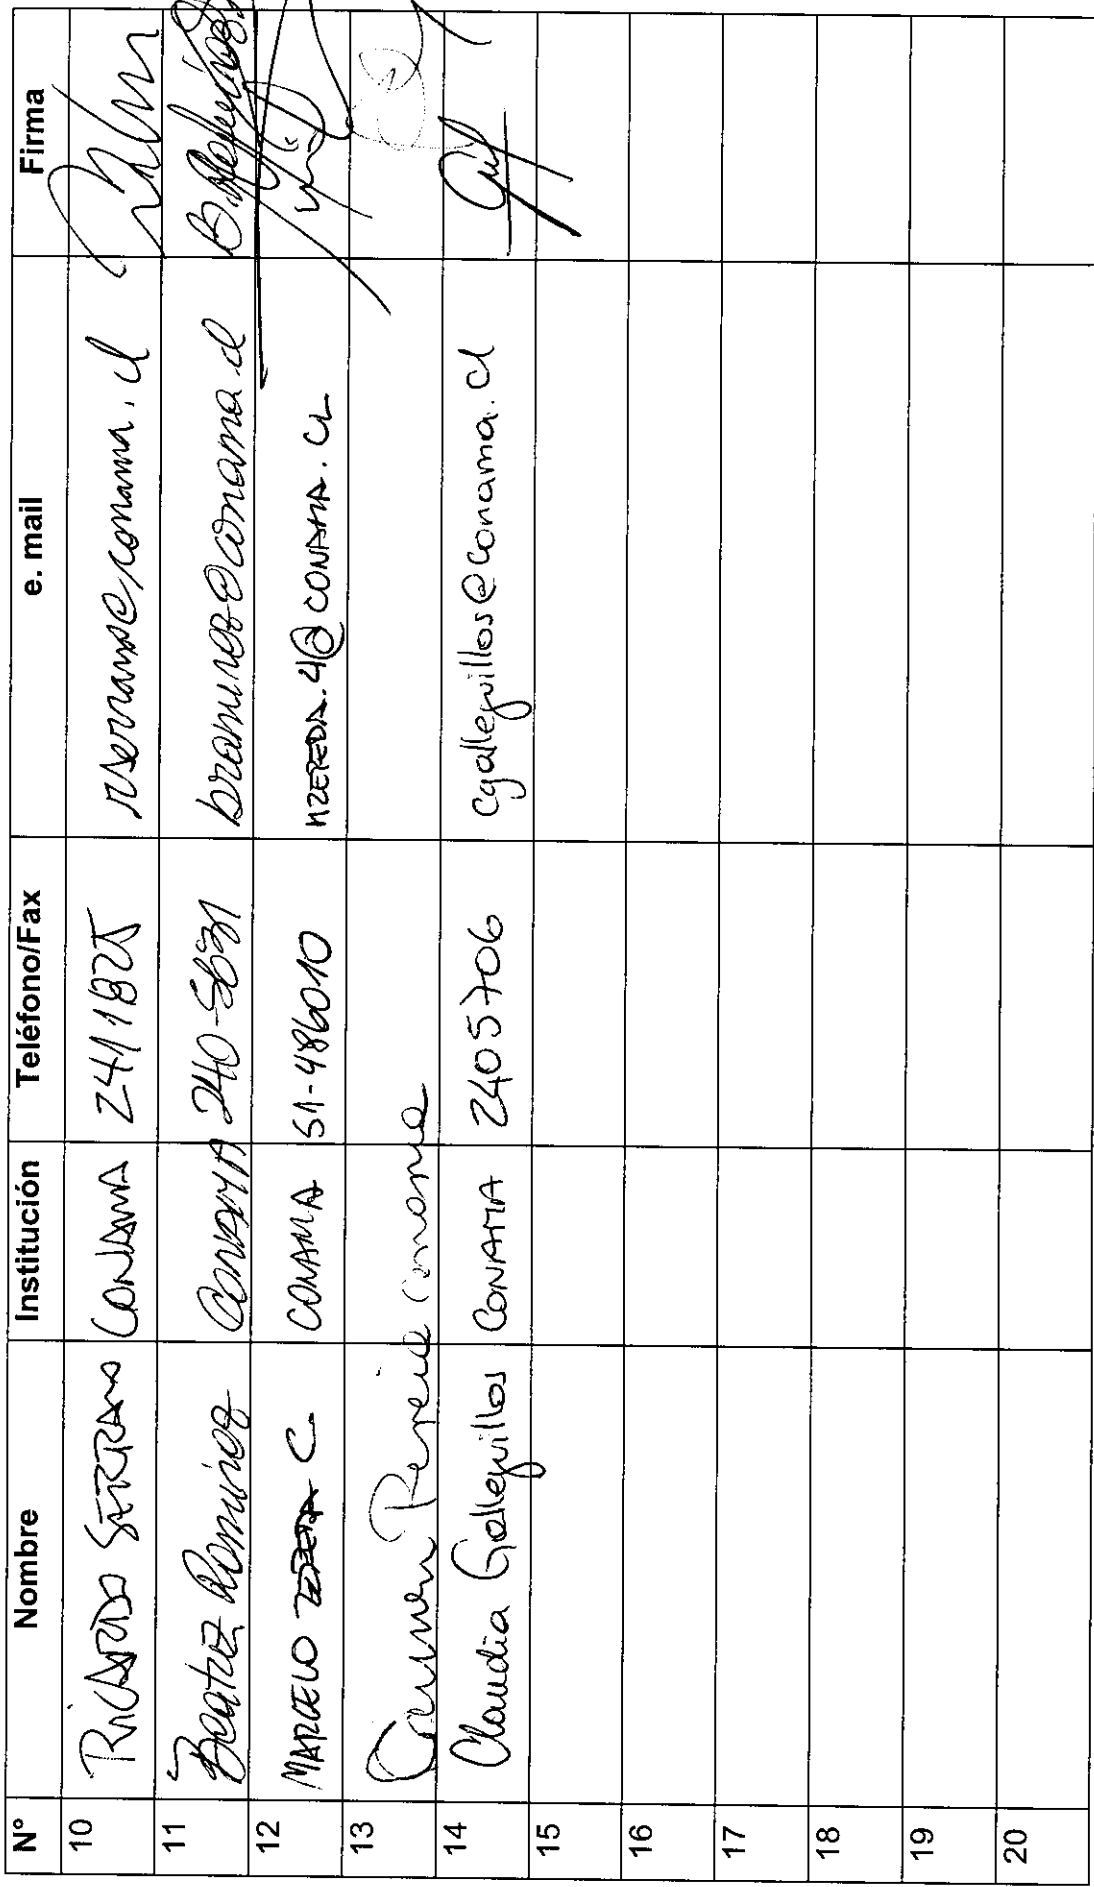 N° Nombre Institución Teléfono/Fax e. mail Firma
10 RICARDO SERRANO CONAMA 2411825 rserrano@conama.cl
11 Beatriz Ramirez CONAMA 240-5631 bramirez@conama.cl
12 MARCELO C. CONAMA 51-486010 MZEPEDA.4@CONAMA.CL
13 Carmen Conama
14 Claudia Galleguillos CONAMA 2405706 cgalleguillos@conama.cl
15
16
17
18
19
20